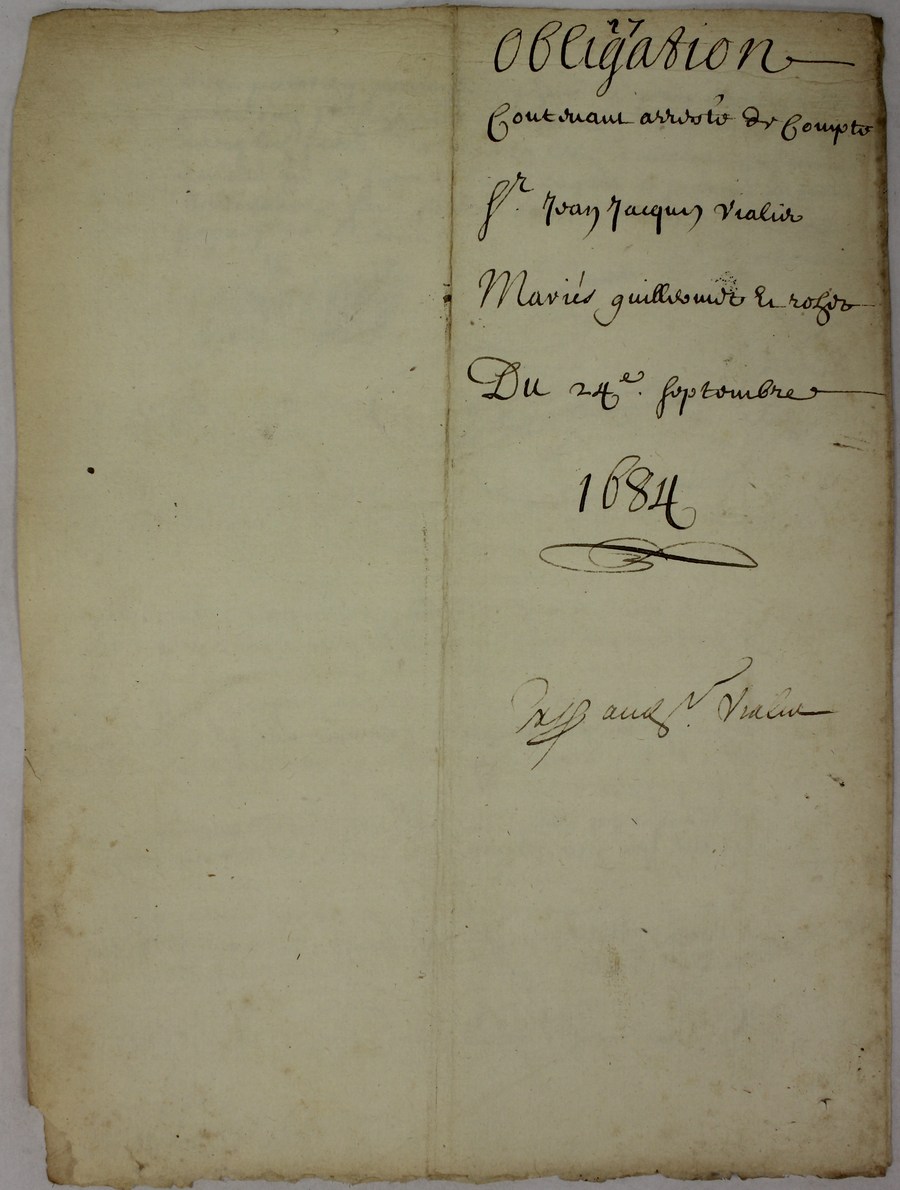 27
Obligation
Contenant arresté de Compte
Sr. Jean Jacques Vialier
Mariés guilleminet et rohet
Du 24e. septembre
1684
Vialier